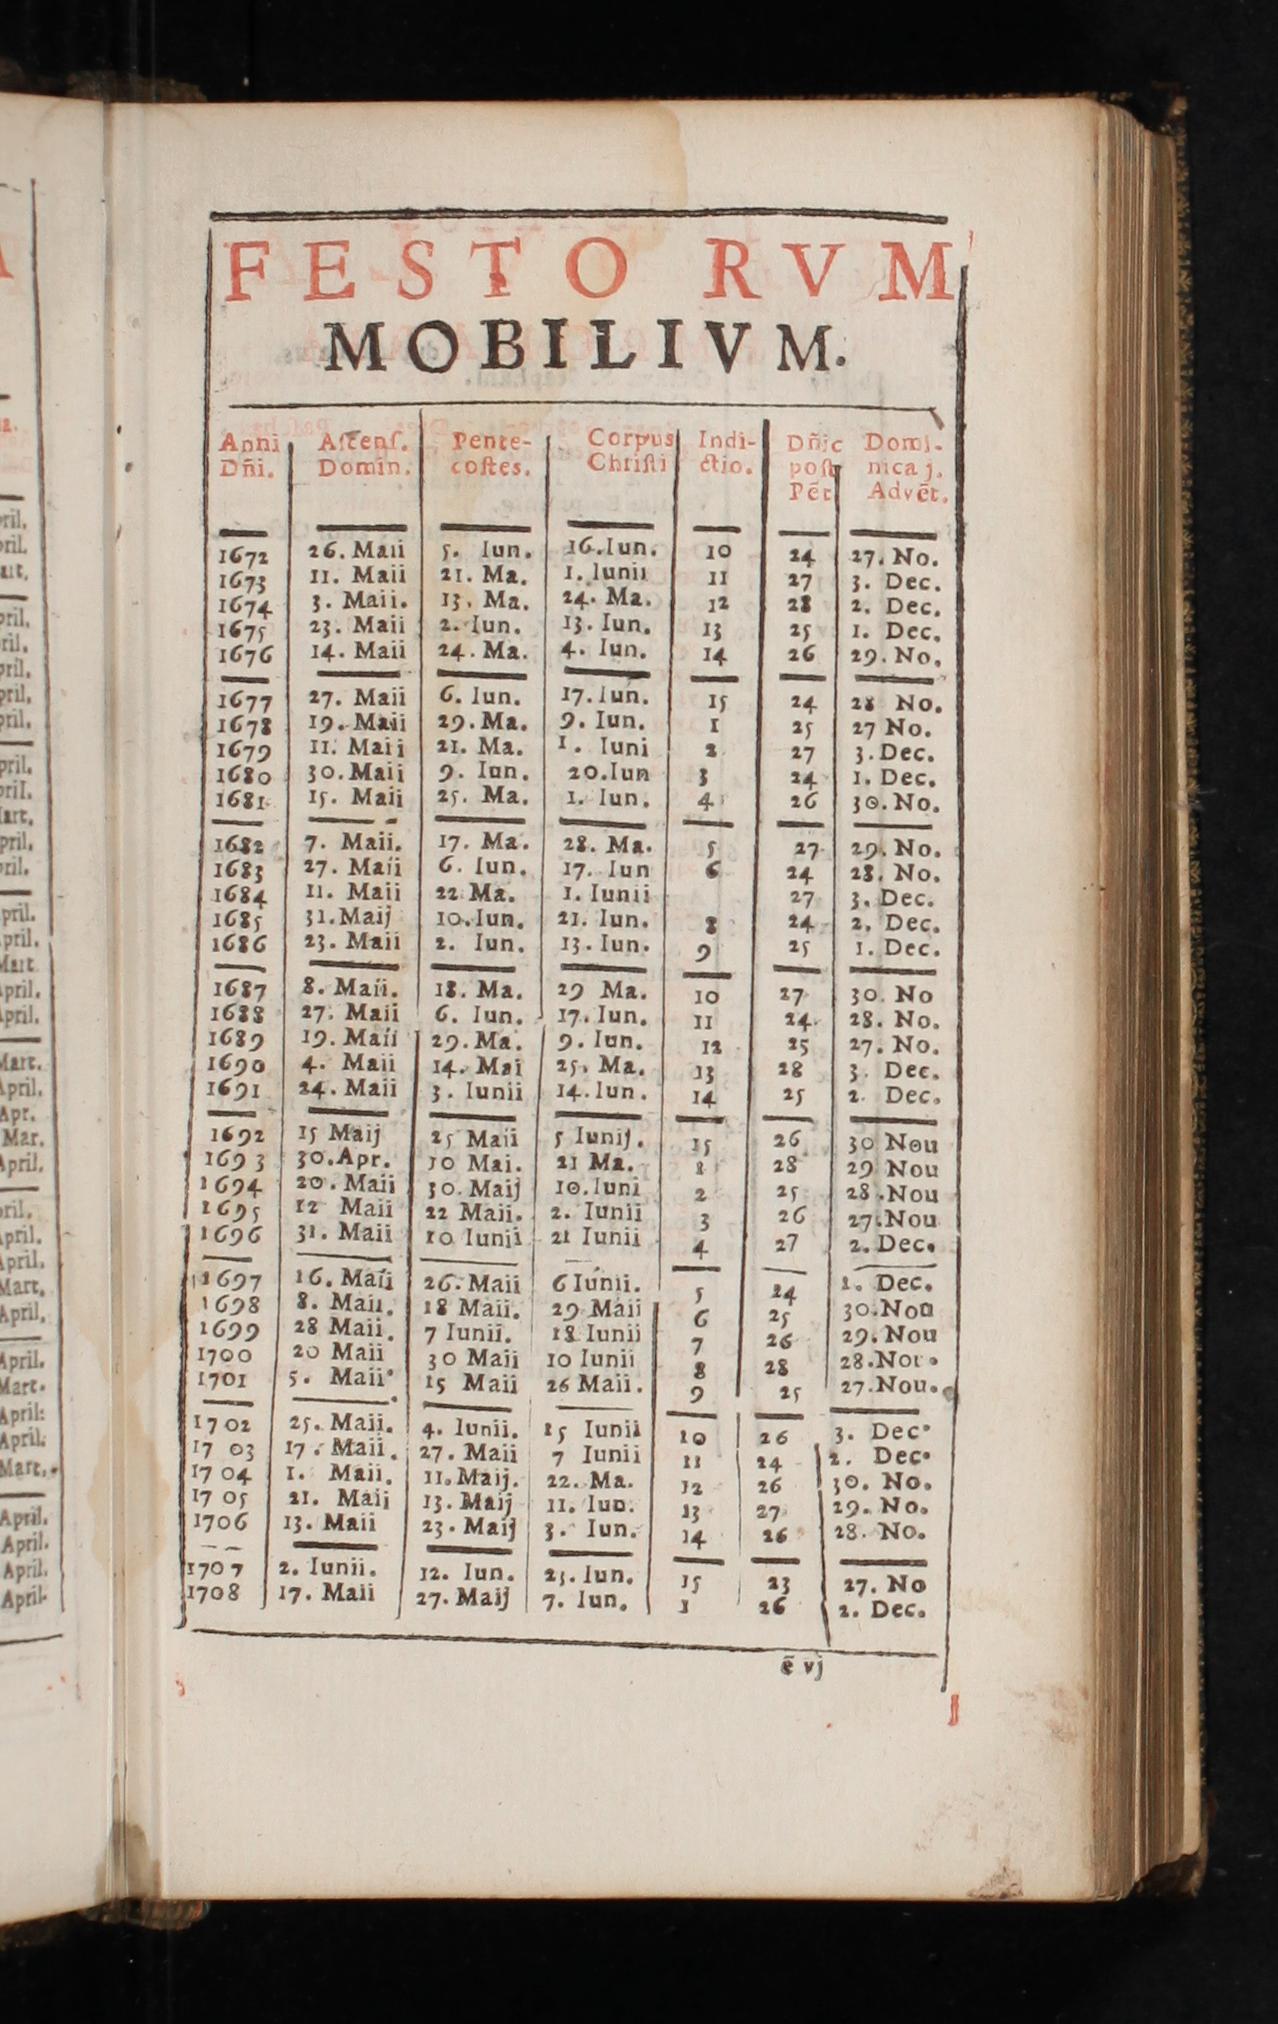 FESTORVM
MOBILIVM.
Anni Dñi. Ascens. Domin. Pentecostes. Corpus Christi Indictio. Dñic post Pẽt Dominica j. Advẽt.
1672 26. Maii 5. Iun. 16. Iun. 10 24 27. No.
1673 11. Maii 21. Ma. 1. Iunii 11 27 3. Dec.
1674 3. Maii. 13. Ma. 24. Ma. 12 28 2. Dec.
1675 23. Maii 2. Iun. 13. Iun. 13 25 1. Dec.
1676 14. Maii 24. Ma. 4. Iun. 14 26 29. No.
1677 27. Maii 6. Iun. 17. Iun. 15 24 28 No.
1678 19. Maii 29. Ma. 9. Iun. 1 25 27 No.
1679 11. Maii 21. Ma. 1. Iuni 2 27 3. Dec.
1680 30. Maii 9. Iun. 20. Iun 3 24 1. Dec.
1681 15. Maii 25. Ma. 1. Iun. 4 26 30. No.
1682 7. Maii. 17. Ma. 28. Ma. 5 27 29. No.
1683 27. Maii 6. Iun. 17. Iun 6 24 28. No.
1684 11. Maii 22 Ma. 1. Iunii 27 3. Dec.
1685 31. Maij 10. Iun. 21. Iun. 8 24 2. Dec.
1686 23. Maii 2. Iun. 13. Iun. 9 25 1. Dec.
1687 8. Maii. 18. Ma. 29 Ma. 10 27 30. No
1688 27. Maii 6. Iun. 17. Iun. 11 24 28. No.
1689 19. Maii 29. Ma. 9. Iun. 12 25 27. No.
1690 4. Maii 14. Mai 25. Ma. 13 28 3. Dec.
1691 24. Maii 3. Iunii 14. Iun. 14 25 2. Dec.
1692 15 Maij 25 Maii 5 Iunij. 15 26 30 Nou
1693 30. Apr. 10 Mai. 21 Ma. 1 28 29 Nou
1694 20. Maii 30. Maij 10. Iuni 2 25 28. Nou
1695 12 Maii 22 Maii. 2. Iunii 3 26 27. Nou
1696 31. Maii 10 Iunii 21 Iunii 4 27 2. Dec.
1697 16. Maii 26. Maii 6 Iunii. 5 24 1. Dec.
1698 8. Maii. 18 Maii. 29 Maii 6 25 30. Nou
1699 28 Maii. 7 Iunii. 18 Iunii 7 26 29. Nou
1700 20 Maii 30 Maii 10 Iunii 8 28 28. Nou.
1701 5. Maii 15 Maii 26 Maii. 9 25 27. Nou.
1702 25. Maii. 4. Iunii. 15 Iunii 10 26 3. Dec.
1703 17. Maii. 27. Maii 7 Iunii 11 24 2. Dec.
1704 1. Maii. 11. Maij. 22. Ma. 12 26 30. No.
1705 21. Maii 13. Maij 11. Iun. 13 27 29. No.
1706 13. Maii 23. Maij 3. Iun. 14 26 28. No.
1707 2. Iunii. 12. Iun. 23. Iun. 15 23 27. No
1708 17. Maii 27. Maij 7. Iun. 1 26 2. Dec.
ẽ vj